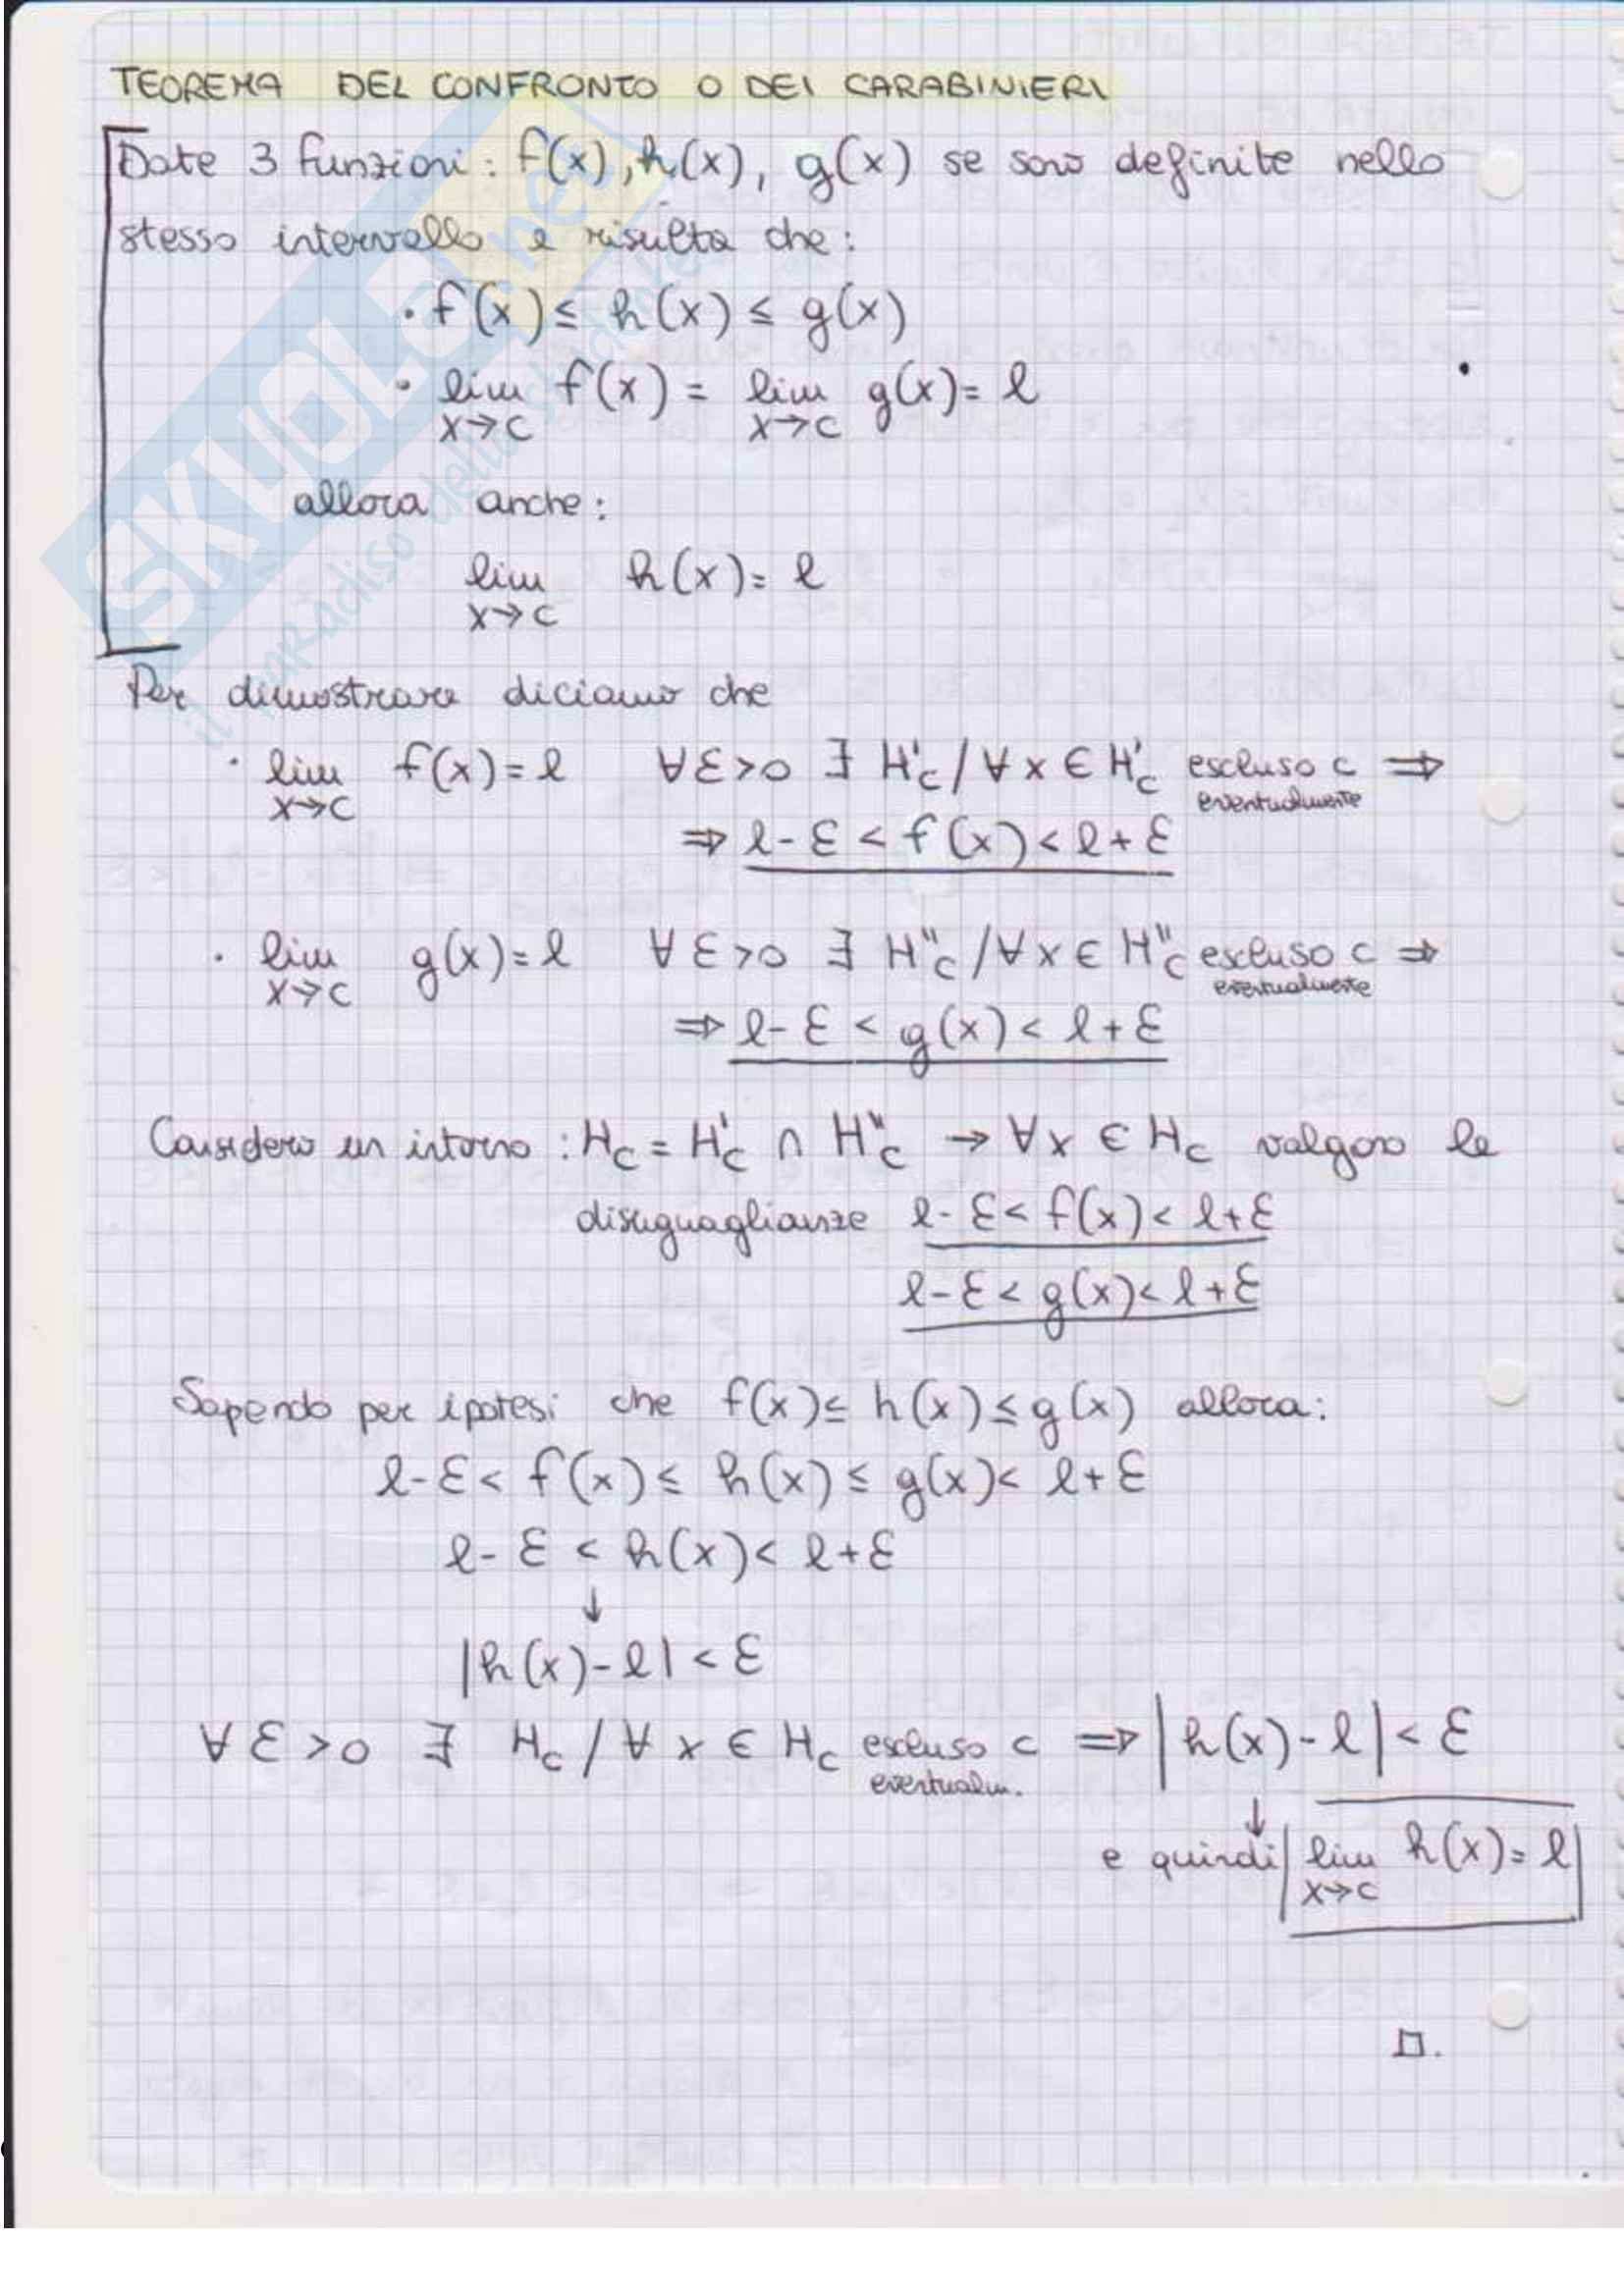 TEOREMA DEL CONFRONTO O DEI CARABINIERI
Date 3 funzioni: f(x), h(x), g(x) se sono definite nello
stesso intervallo e risulta che:
· f(x) ≤ h(x) ≤ g(x)
· lim f(x) = lim g(x) = l
x→c x→c
allora anche:
lim h(x) = l
x→c
Per dimostrare diciamo che
· lim f(x) = l ∀ε>0 ∃ H'c / ∀x ∈ H'c escluso c ⇒
x→c eventualmente
⇒ l-ε < f(x) < l+ε
· lim g(x) = l ∀ε>0 ∃ H"c / ∀x ∈ H"c escluso c ⇒
x→c eventualmente
⇒ l-ε < g(x) < l+ε
Considero un intorno: Hc = H'c ∩ H"c → ∀x ∈ Hc valgono le
disuguaglianze l-ε < f(x) < l+ε
l-ε < g(x) < l+ε
Sapendo per ipotesi che f(x) ≤ h(x) ≤ g(x) allora:
l-ε < f(x) ≤ h(x) ≤ g(x) < l+ε
l-ε < h(x) < l+ε
↓
|h(x)-l| < ε
∀ε>0 ∃ Hc / ∀x ∈ Hc escluso c ⇒ |h(x)-l| < ε
eventualm.
↓
e quindi lim h(x) = l
x→c
□.
SKUOLA.net
il paradiso dello studente